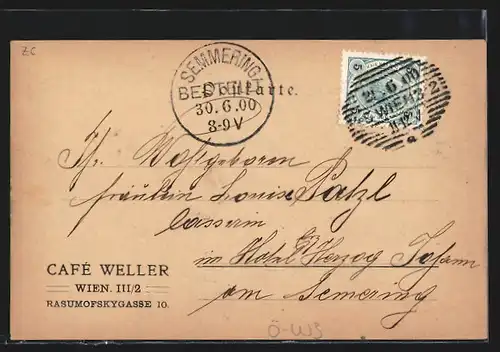 ZC
SEMMERING
BESTELLT
Postkarte.
30.6.00
8-9V
5
WIEN 3/2
Ihr Wohlgeboren
Fräulein Louise Patzl
Casserin
im Hotel Erz Herzog Johann
am Semering
CAFÉ WELLER
WIEN. III/2
RASUMOFSKYGASSE 10.
Ö-W3